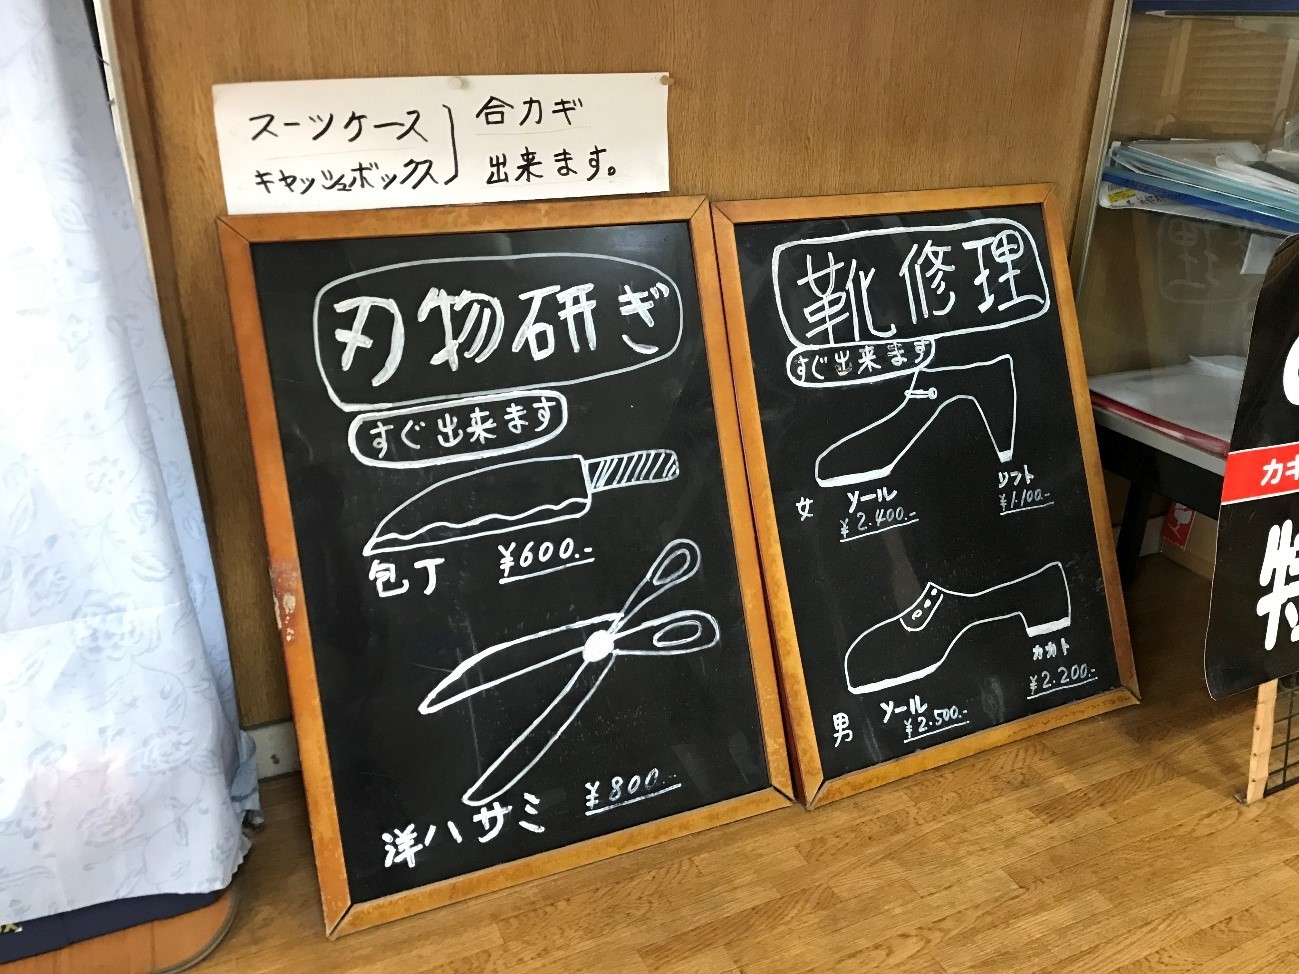 スーツケース
キャッシュボックス
合カギ
出来ます。
刃物研ぎ
すぐ出来ます
包丁
¥600.-
洋ハサミ
¥800.-
靴修理
すぐ出来ます
女
ソール
¥2.400.-
リフト
¥1.100.-
男
ソール
¥2.500.-
カカト
¥2.200.-
カギ